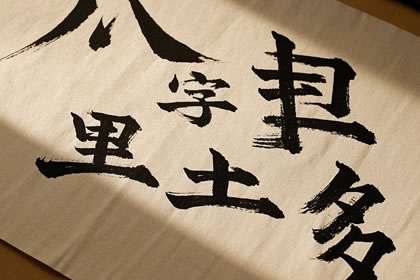 字
里土多